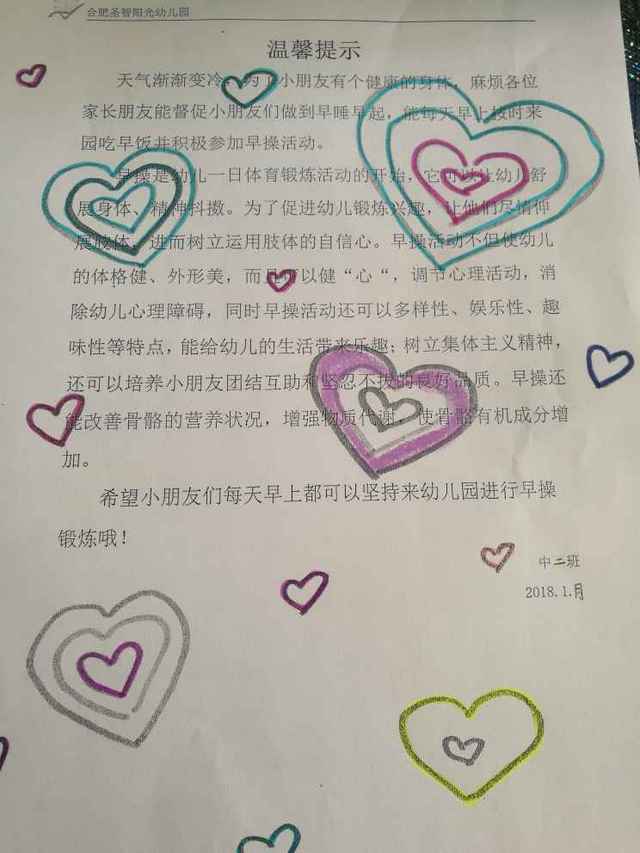 合肥圣智阳光幼儿园
温馨提示
天气渐渐变冷，为了小朋友有个健康的身体，麻烦各位
家长朋友能督促小朋友们做到早睡早起，能每天早上按时来
园吃早饭并积极参加早操活动。
早操是幼儿一日体育锻炼活动的开始，它可以让幼儿舒
展身体、精神抖擞。为了促进幼儿锻炼兴趣，让他们尽情伸
展肢体，进而树立运用肢体的自信心。早操活动不但使幼儿
的体格健、外形美，而且可以健“心“，调节心理活动，消
除幼儿心理障碍，同时早操活动还可以多样性、娱乐性、趣
味性等特点，能给幼儿的生活带来乐趣；树立集体主义精神，
还可以培养小朋友团结互助和坚忍不拔的良好品质。早操还
能改善骨骼的营养状况，增强物质代谢，使骨骼有机成分增
加。
希望小朋友们每天早上都可以坚持来幼儿园进行早操
锻炼哦！
中二班
2018.1.月